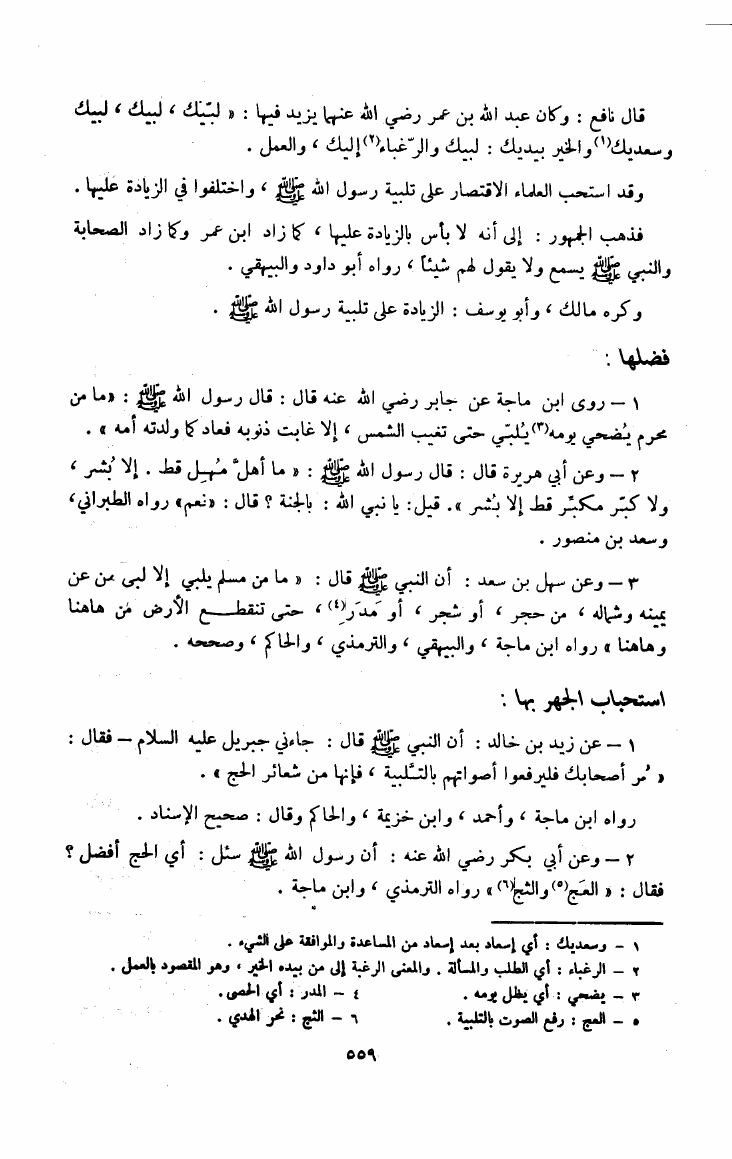 قال نافع : وكان عبد الله بن عمر رضي الله عنهما يزيد فيها : « لبّيك ، لبيك ، لبيك
وسعديك(١) والخير بيديك : لبيك والرّغباء(٢) إليك ، والعمل .
وقد استحب العلماء الاقتصار على تلبية رسول الله ﷺ ، واختلفوا في الزيادة عليها .
فذهب الجمهور : إلى أنه لا بأس بالزيادة عليها ، كما زاد ابن عمر وكما زاد الصحابة
والنبي ﷺ يسمع ولا يقول لهم شيئاً ، رواه أبو داود والبيهقي .
وكره مالك ، وأبو يوسف : الزيادة على تلبية رسول الله ﷺ .
فضلها :
١ – روى ابن ماجة عن جابر رضي الله عنه قال : قال رسول الله ﷺ : «ما من
محرم يُضحي يومه(٣) يُلبّي حتى تغيب الشمس ، إلا غابت ذنوبه فعاد كما ولدته أمه » .
٢ – وعن أبي هريرة قال : قال رسول الله ﷺ : « ما أهلَّ مُهِل قط . إلا بُشر ،
ولا كبّر مكبّر قط إلا بُشر ». قيل: يا نبي الله : بالجنة ؟ قال : «نعم» رواه الطبراني،
وسعد بن منصور .
٣ – وعن سهل بن سعد : أن النبي ﷺ قال : « ما من مسلم يلبي إلا لبى من عن
يمينه وشماله ، من حجر ، أو شجر ، أو مَدَر(٤) ، حتى تنقطع الأرض من هاهنا
وهاهنا » رواه ابن ماجة ، والبيهقي ، والترمذي ، والحاكم ، وصححه .
استحباب الجهر بها :
١ – عن زيد بن خالد : أن النبي ﷺ قال : جاءني جبريل عليه السلام – فقال :
« مُر أصحابك فليرفعوا أصواتهم بالتَّلبية ، فإنها من شعائر الحج » .
رواه ابن ماجة ، وأحمد ، وابن خزيمة ، والحاكم وقال : صحيح الإسناد .
٢ – وعن أبي بكر رضي الله عنه : أن رسول الله ﷺ سئل : أي الحج أفضل ؟
فقال : « العَج(٥) والثج(٦) » رواه الترمذي ، وابن ماجة .
١ – وسعديك : أي إسعاد بعد إسعاد من المساعدة والموافقة على الشيء .
٢ – الرغباء : أي الطلب والمسألة . والمعنى الرغبة إلى من بيده الخير ، وهو المقصود بالعمل .
٣ – يضحي : أي يظل يومه . ٤ – المدر : أي الحصى .
٥ – العج : رفع الصوت بالتلبية . ٦ – الثج : نحر الهدي .
٥٥٩